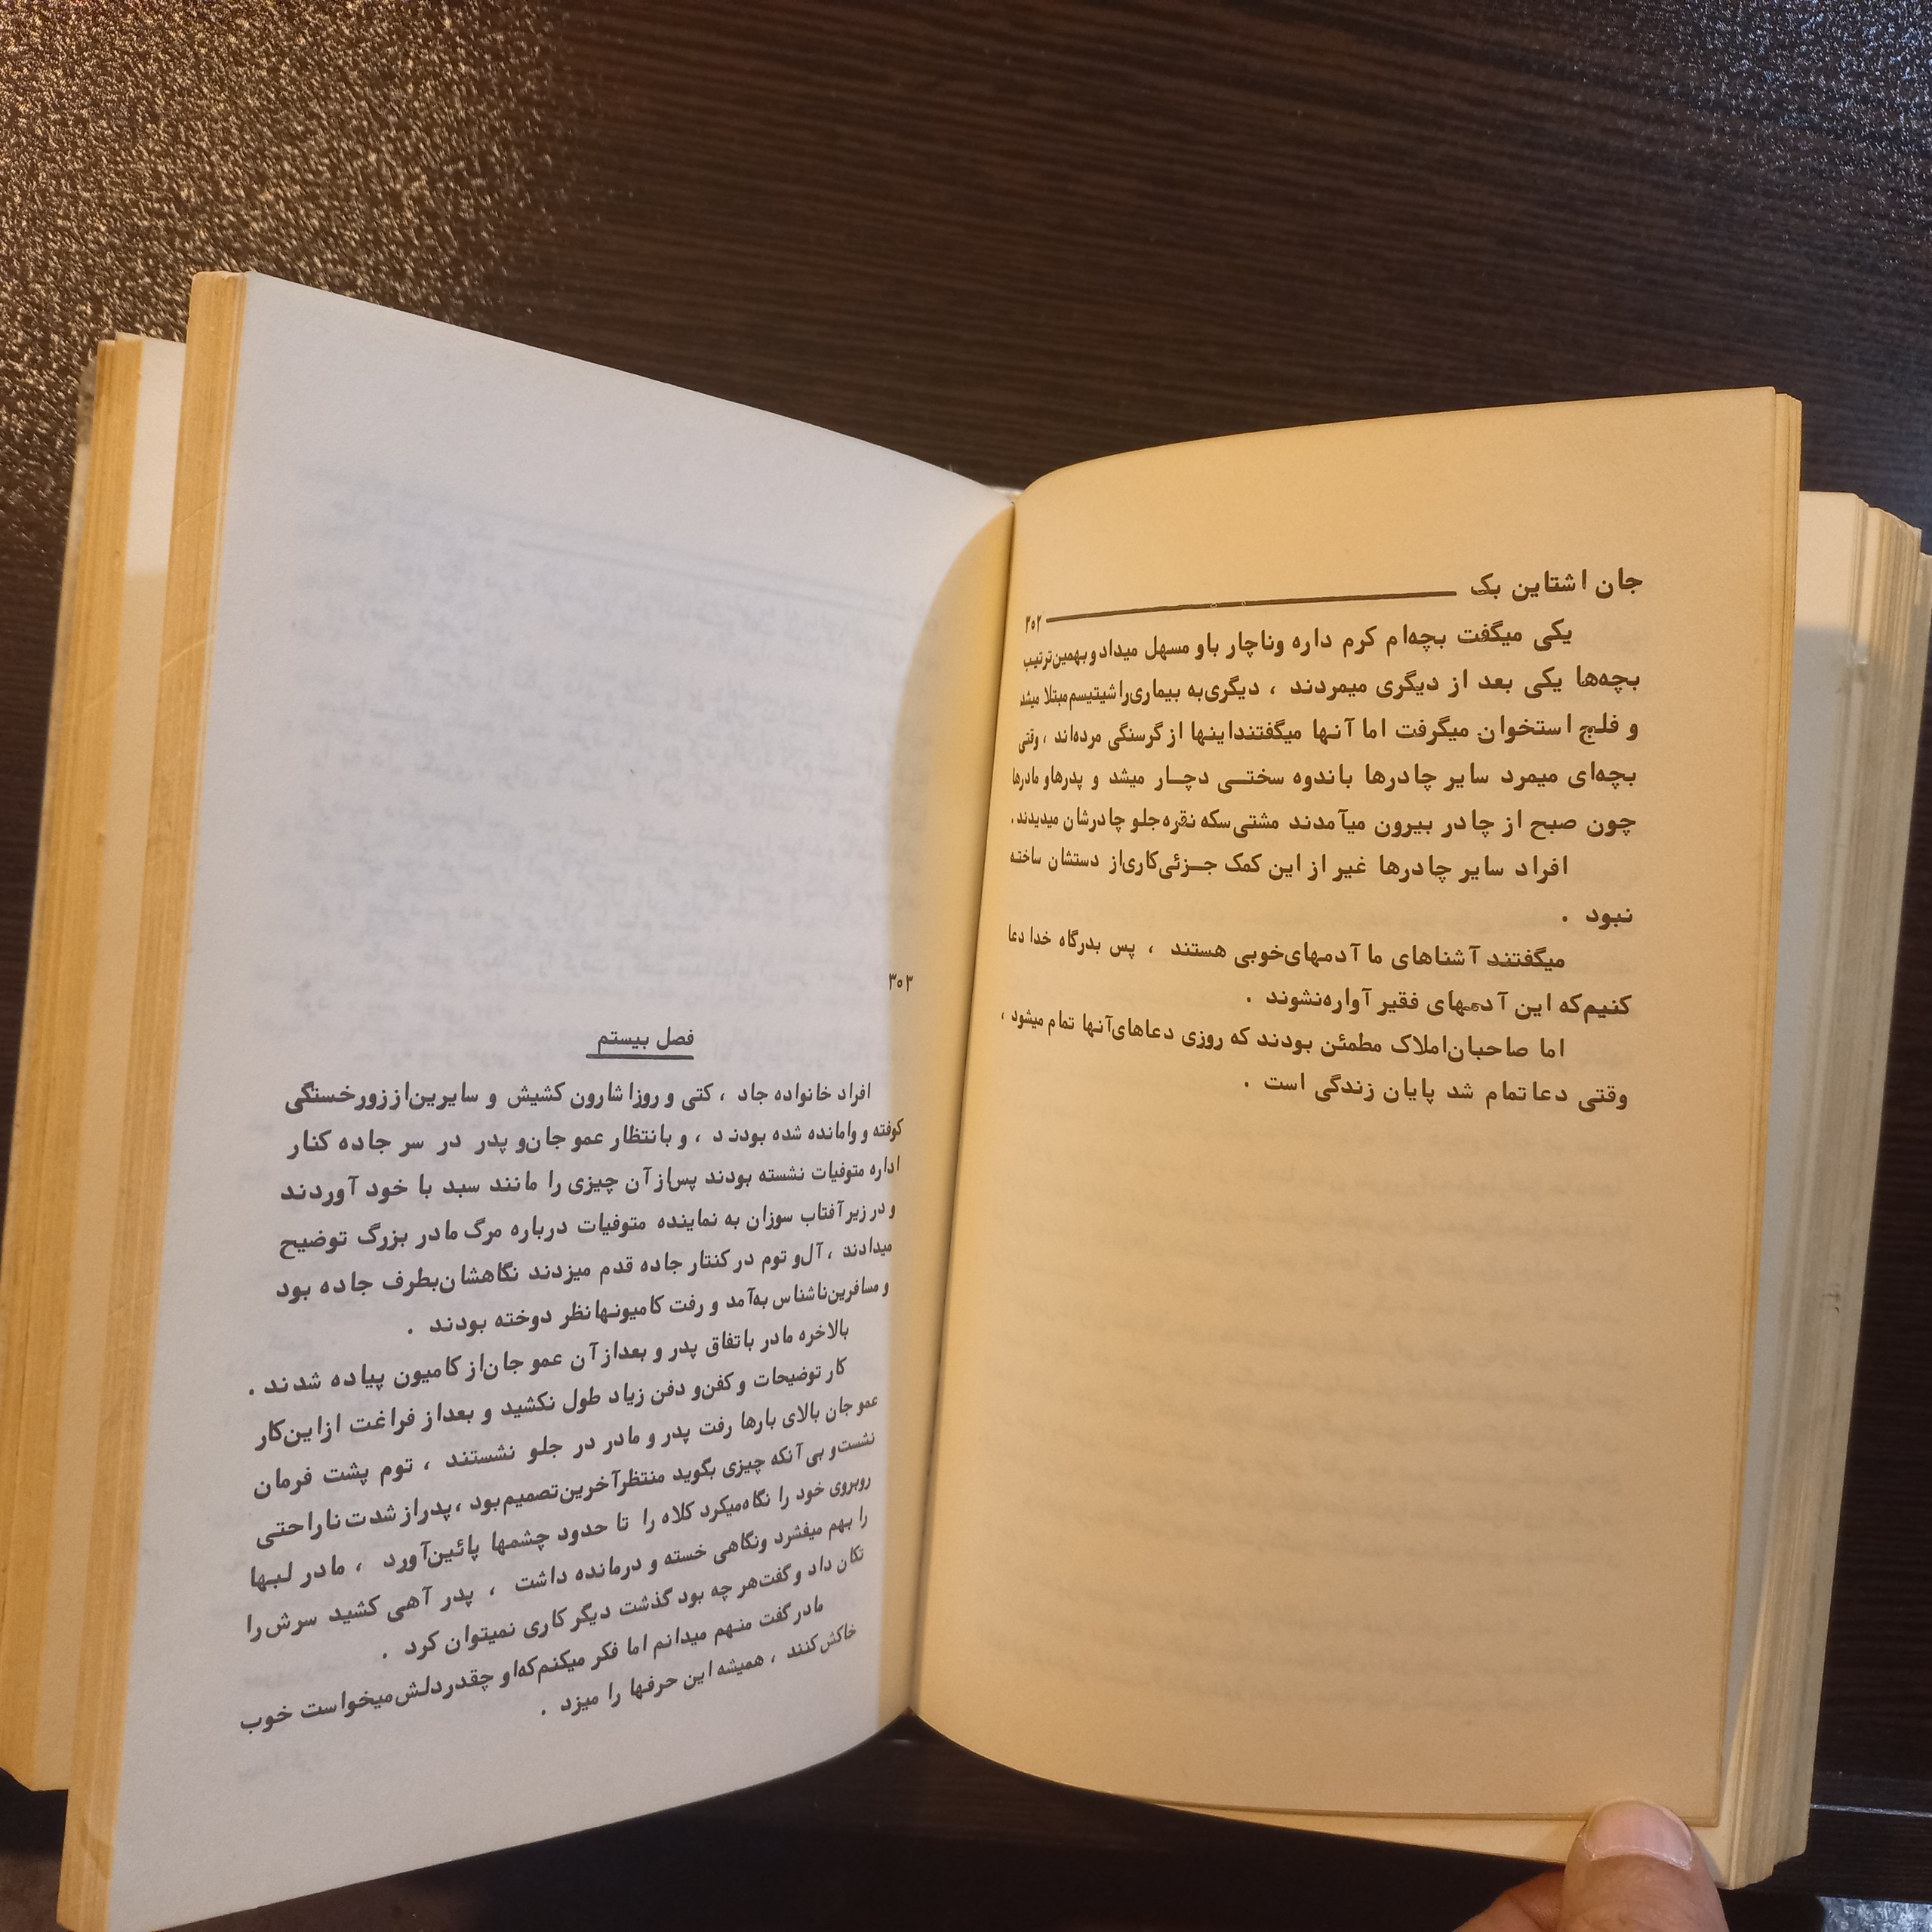 جان اشتاین بک
۳۰۲
یکی میگفت بچه‌ام کرم داره وناچار باو مسهل میداد و بهمین‌ترتیب
بچه‌ها یکی بعد از دیگری میمردند ، دیگری‌به بیماری‌راشیتیسم‌مبتلا میشد
و فلج استخوان میگرفت اما آنها میگفتنداینها از گرسنگی مرده‌اند ، وقتی
بچه‌ای میمرد سایر چادرها باندوه سختی دچار میشد و پدرهاو مادرها
چون صبح از چادر بیرون میآمدند مشتی‌سکه نقره‌جلو چادرشان میدیدند.
افراد سایر چادرها غیر از این کمک جزئی‌کاری‌از دستشان ساخته
نبود .
میگفتند آشناهای ما آدمهای‌خوبی هستند ، پس بدرگاه خدا دعا
کنیم‌که این آدمهای فقیر آواره‌نشوند .
اما صاحبان‌املاک مطمئن بودند که روزی دعاهای‌آنها تمام میشود ،
وقتی دعاتمام شد پایان زندگی است .
۳۰۳
فصل بیستم
افراد خانواده جاد ، کتی و روزا شارون کشیش و سایرین‌اززورخستگی
کوفته و وامانده شده بودند ، و بانتظار عمو جان‌و پدر در سر جاده کنار
اداره متوفیات نشسته بودند پس‌از آن چیزی را مانند سبد با خود آوردند
و در زیر آفتاب سوزان به نماینده متوفیات درباره مرگ مادر بزرگ توضیح
میدادند ، آل‌و توم در کنتار جاده قدم میزدند نگاهشان‌بطرف جاده بود
و مسافرین‌ناشناس به‌آمد و رفت کامیونهانظر دوخته بودند .
بالاخره مادر باتفاق پدر و بعداز آن عمو جان‌از کامیون پیاده شدند .
کار توضیحات و کفن‌و دفن زیاد طول نکشید و بعداز فراغت ازاین‌کار
عمو جان بالای بارها رفت پدر و مادر در جلو نشستند ، توم پشت فرمان
نشست‌و بی‌آنکه چیزی بگوید منتظرآخرین‌تصمیم‌بود ،پدراز شدت‌ناراحتی
روبروی خود را نگاه‌میکرد کلاه را تا حدود چشمها پائین‌آورد ، مادر لبها
را بهم میفشرد ونگاهی خسته و درمانده داشت ، پدر آهی کشید سرش‌را
تکان داد و گفت‌هر چه بود گذشت دیگر کاری نمیتوان کرد .
مادر گفت منهم میدانم اما فکر میکنم‌که‌او چقدردلش‌میخواست خوب
خاکش‌کنند ، همیشه این حرفها را میزد .